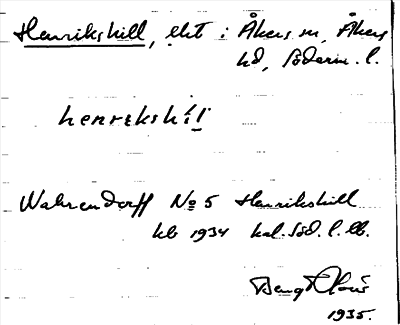 Henrikshill, lht i Åkers sn, Åkers
hd, Söderm. l.
henrikshil
Wahrendorff No 5 Henrikshill
hb 1934 kal. Söd. l. lb.
Bengt
1935.